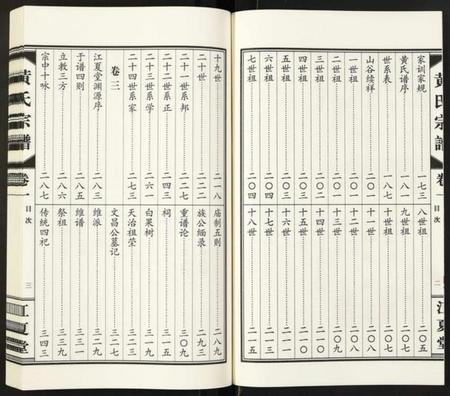 黄氏宗譜 卷一 目次 二 江夏堂
家训家规 一七三
黄氏谱序
世系表 一八七
山谷续祥
二世祖
三世祖
四世祖
五世祖
六世祖
七世祖 二〇四
八世祖 二〇五
九世祖 二〇六
十世祖 二〇七
十一世 二〇八
十二世
十三世
十四世
十五世
十六世
十七世
十八世 二一五
十九世 二一八
二十世 二二二
二十一世系邦 二二七
二十二世系正 二四三
二十三世系学 二六一
二十四世系家 二七三
卷三
江夏堂渊源序 二八三
于谱四则 二八五
立教三方 二八六
宗中十咏 二八七
庙制五则 二八九
族公缅录 二九三
重谱论 三〇九
祠 三一五
白果树 三一九
天治祖茔 三二一
文昌公墓记 三二七
维派 三二九
维谱 三三一
祭祖 三三九
传统四祀 三四三
黄氏宗譜 卷一 目次 三 江夏堂